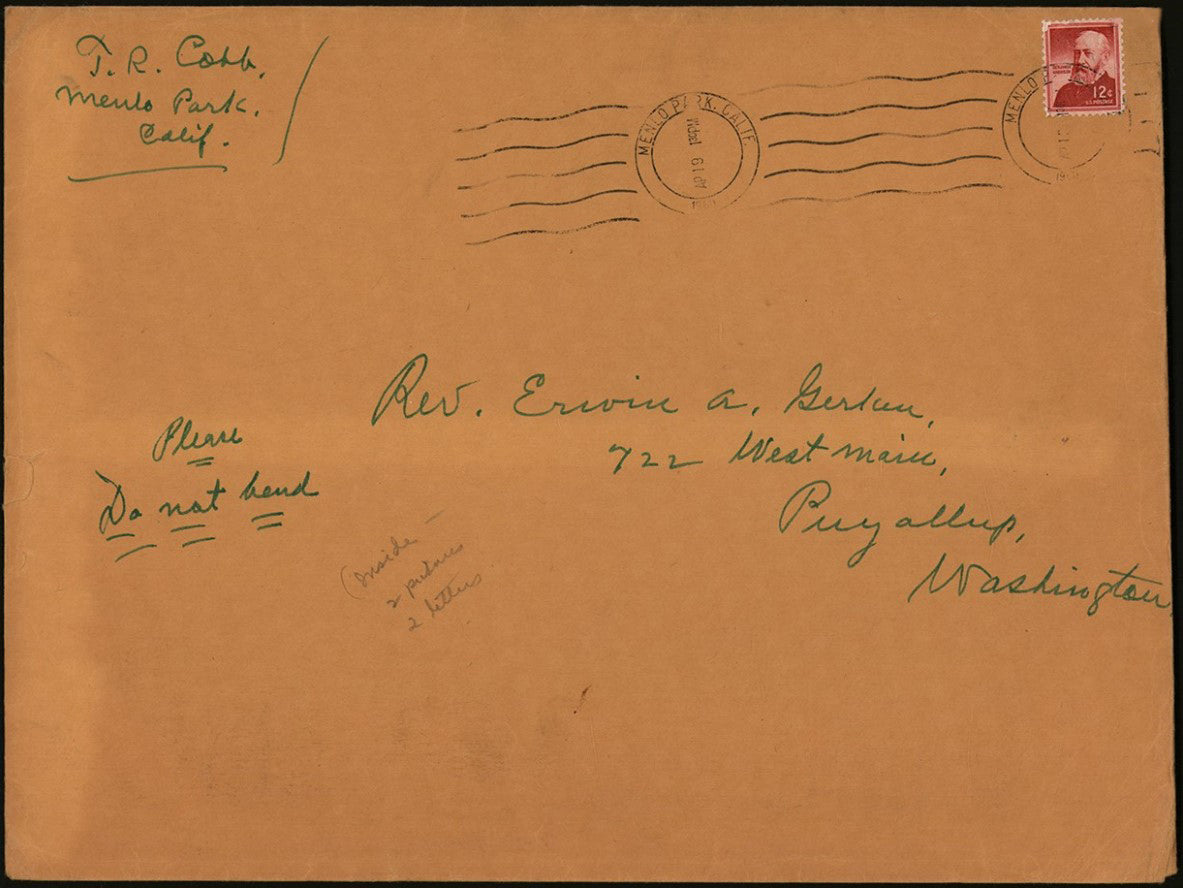 T. R. Cobb.
Menlo Park.
Calif.
MENLO PARK, CALIF
1 30PM
AP 19
MENLO P
12¢
U.S. POSTAGE
Rev. Erwin A. Gerken,
722 West Main,
Puyallup,
Washington
Please
Do not bend
(Inside
2 pictures
2 letters